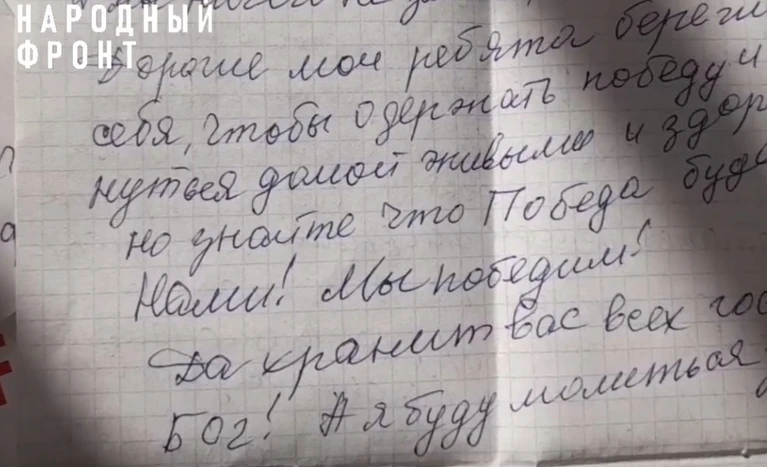 НАРОДНЫЙ
ФРОНТ
Дорогие мои ребята береги
себя, чтобы одержать победу и
нуться домой живыми и здор
но знайте что Победа буде
Нами! Мы победим!
Да хранит вас всех гос
Бог! А я буду молиться